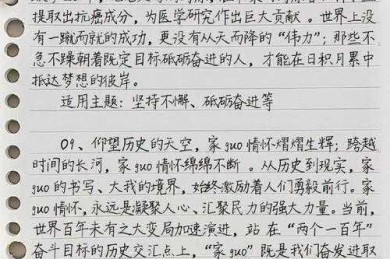 提取出抗癌成分，为医学研究作出巨大贡献。世界上没
有一蹴而就的成功，更没有从天而降的“伟力”；那些不
息不躁朝着既定目标砥砺奋进的人，才能在日积月累中
抵达梦想的彼岸。
适用主题：坚持不懈、砥砺奋进等
09、仰望历史的天空，家guo情怀熠熠生辉；跨越
时间的长河，家guo情怀绵绵不断。从历史到现实，家
guo的书写、大我的境界，始终激励着人们勇毅前行。家
guo情怀，永远是凝聚人心、汇聚民力的强大力量。当前，
世界百年未有之大变局加速演进，站在“两个一百年”
奋斗目标的历史交汇点上，“家guo”既是我们奋发进取